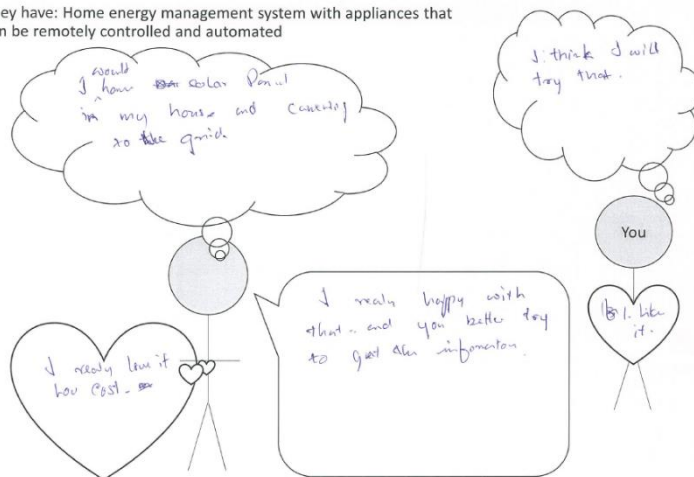 ey have: Home energy management system with appliances that
n be remotely controlled and automated
would
I have solar Panel
in my house and
to the grid
I think I will
try that.
You
I realy happy with
that. and you better try
to get the information.
I realy love it
low cost.
I like
it.